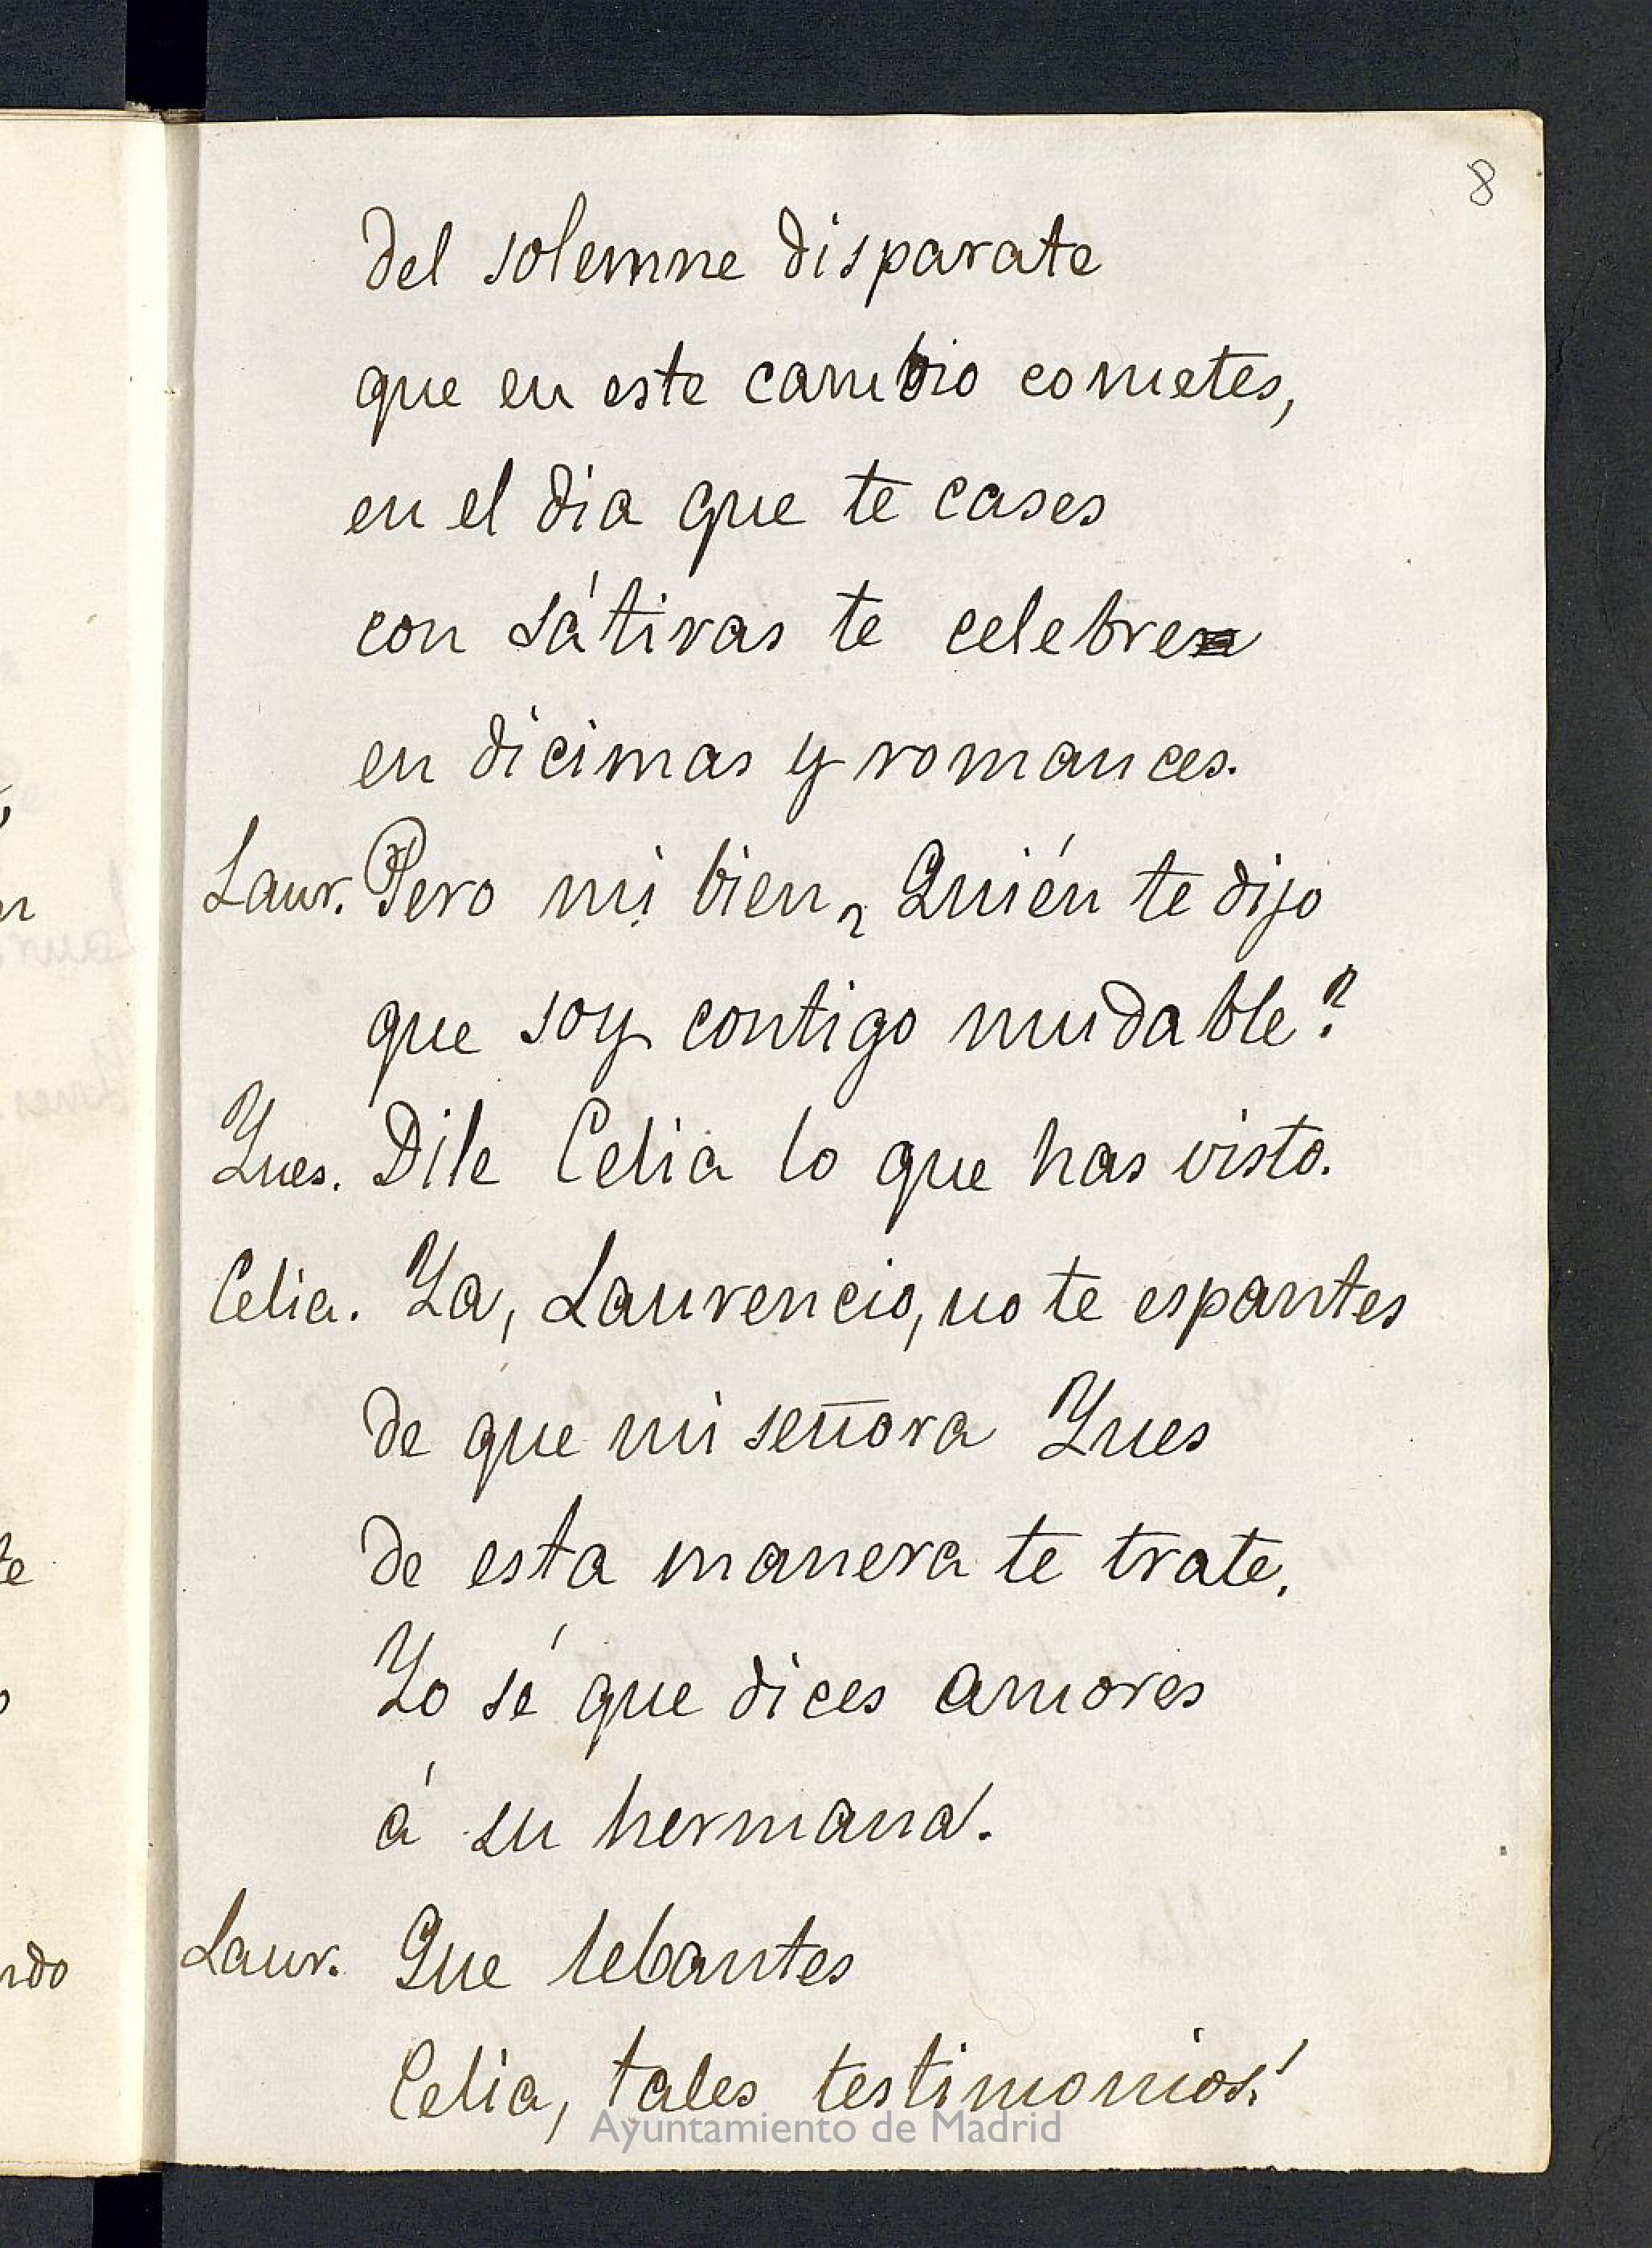 8
del solemne disparate
que en este cambio cometes,
en el dia que te cases
con sátiras te celebre
en dicimas y romances.
Laur. Pero mi bien ¿Quién te dijo
que soy contigo mudable?
Ynes. Dile Celia lo que has visto.
Celia. Ya, Laurencio, no te espantes
de que mi señora Ynes
de esta manera te trate.
Yo sé que dices amores
á su hermana.
Laur. Que lebantes
Celia, tales testimonios!
Ayuntamiento de Madrid